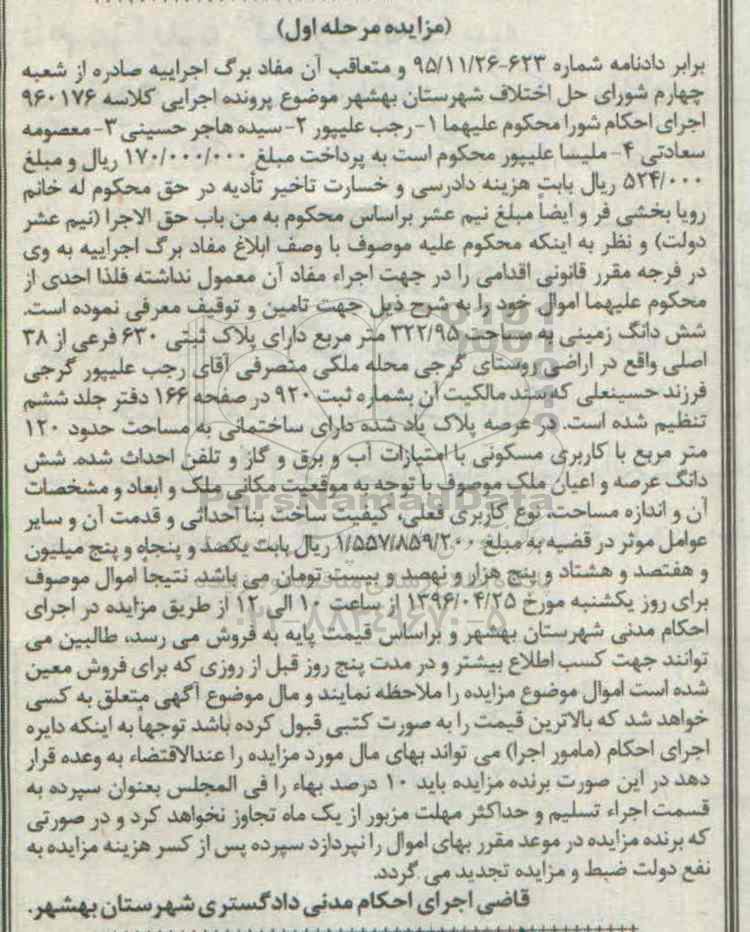 (مزایده مرحله اول)
برابر دادنامه شماره ۶۲۳-۹۵/۱۱/۲۶ و متعاقب آن مفاد برگ اجراییه صادره از شعبه
چهارم شورای حل اختلاف شهرستان بهشهر موضوع پرونده اجرایی کلاسه ۹۶۰۱۷۶
اجرای احکام شورا محکوم علیهما ۱- رجب علیپور ۲- سیده هاجر حسینی ۳- معصومه
سعادتی ۴- ملیسا علیپور محکوم است به پرداخت مبلغ ۱۷۰/۰۰۰/۰۰۰ ریال و مبلغ
۵۲۴/۰۰۰ ریال بابت هزینه دادرسی و خسارت تاخیر تأدیه در حق محکوم له خانم
رویا بخشی فر و ایضاً مبلغ نیم عشر براساس محکوم به من باب حق الاجرا (نیم عشر
دولت) و نظر به اینکه محکوم علیه موصوف با وصف ابلاغ مفاد برگ اجراییه به وی
در فرجه مقرر قانونی اقدامی را در جهت اجراء مفاد آن معمول نداشته فلذا احدی از
محکوم علیهما اموال خود را به شرح ذیل جهت تامین و توقیف معرفی نموده است.
شش دانگ زمینی به مساحت ۳۲۲/۹۵ متر مربع دارای پلاک ثبتی ۶۳۰ فرعی از ۳۸
اصلی واقع در اراضی روستای گرجی محله ملکی متصرفی آقای رجب علیپور گرجی
فرزند حسینعلی که سند مالکیت آن بشماره ثبت ۹۲۰ در صفحه ۱۶۶ دفتر جلد ششم
تنظیم شده است. در عرصه پلاک یاد شده دارای ساختمانی به مساحت حدود ۱۲۰
متر مربع با کاربری مسکونی با امتیازات آب و برق و گاز و تلفن احداث شده. شش
دانگ عرصه و اعیان ملک موصوف با توجه به موقعیت مکانی ملک و ابعاد و مشخصات
آن و اندازه مساحت، نوع کاربری فعلی، کیفیت ساخت بنا احداثی و قدمت آن و سایر
عوامل موثر در قضیه به مبلغ ۱/۵۵۷/۸۵۹/۲۰۰ ریال بابت یکصد و پنجاه و پنج میلیون
و هفتصد و هشتاد و پنج هزار و نهصد و بیست تومان می باشد. نتیجا اموال موصوف
برای روز یکشنبه مورخ ۱۳۹۶/۰۴/۲۵ از ساعت ۱۰ الی ۱۲ از طریق مزایده در اجرای
احکام مدنی شهرستان بهشهر و براساس قیمت پایه به فروش می رسد، طالبین می
توانند جهت کسب اطلاع بیشتر و در مدت پنج روز قبل از روزی که برای فروش معین
شده است اموال موضوع مزایده را ملاحظه نمایند و مال موضوع آگهی متعلق به کسی
خواهد شد که بالاترین قیمت را به صورت کتبی قبول کرده باشد توجهاً به اینکه دایره
اجرای احکام (مامور اجرا) می تواند بهای مال مورد مزایده را عندالاقتضاء به وعده قرار
دهد در این صورت برنده مزایده باید ۱۰ درصد بهاء را فی المجلس بعنوان سپرده به
قسمت اجراء تسلیم و حداکثر مهلت مزبور از یک ماه تجاوز نخواهد کرد و در صورتی
که برنده مزایده در موعد مقرر بهای اموال را نپردازد سپرده پس از کسر هزینه مزایده به
نفع دولت ضبط و مزایده تجدید می گردد.
قاضی اجرای احکام مدنی دادگستری شهرستان بهشهر.
ParsNamadData
۰۲۱-۸۸۳۴۹۶۷۰-۵